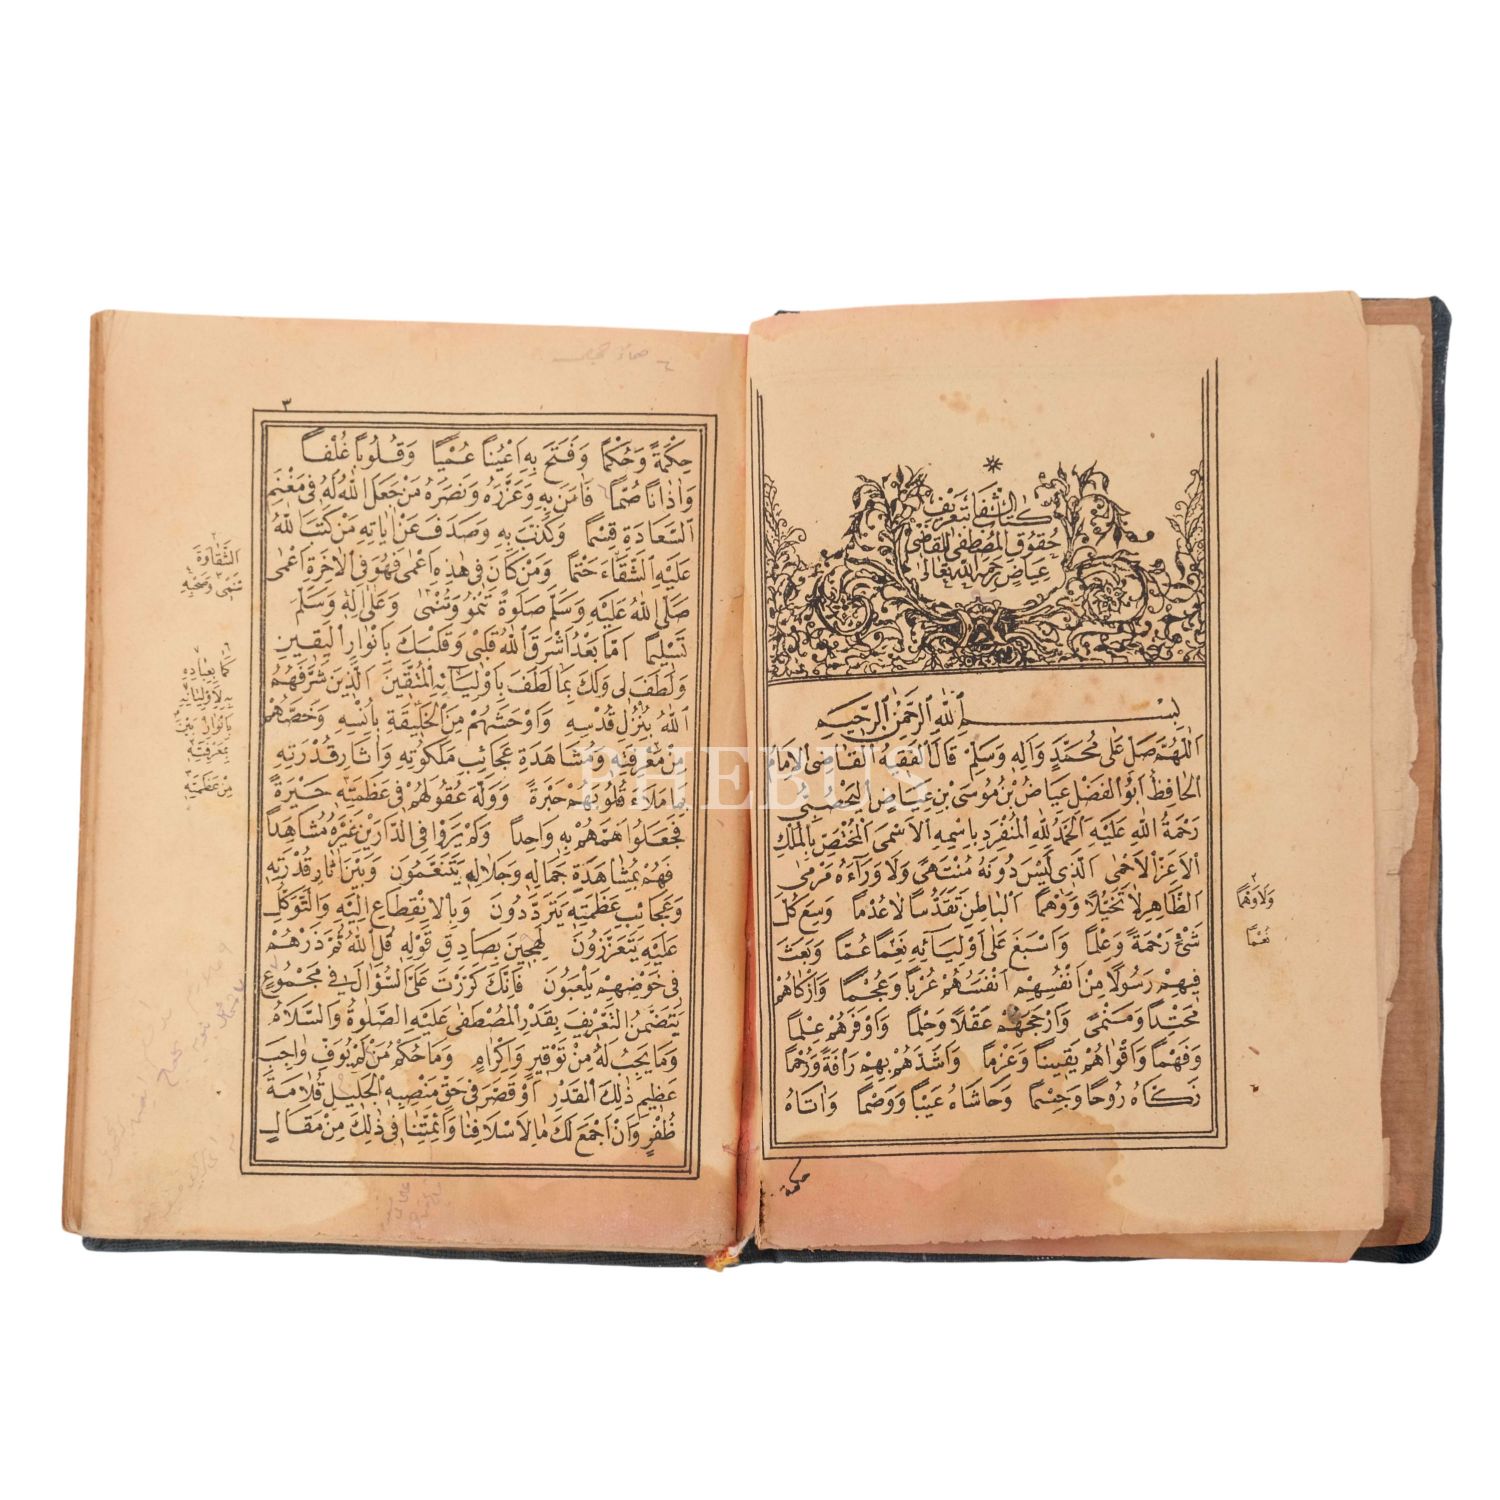 كتاب الشفا بتعريف
حقوق المصطفى للقاضي
عياض رحمه الله تعالى
بِسْمِ اللّٰهِ الرَّحْمٰنِ الرَّحِيمِ
اَللّٰهُمَّ صَلِّ عَلٰى مُحَمَّدٍ وَاٰلِهِ وَسَلِّمْ قَالَ الْفَقِيهُ الْقَاضِى الْاِمَامُ
الْحَافِظُ اَبُو الْفَضْلِ عِيَاضُ بْنُ مُوسَى بْنِ عِيَاضٍ الْيَحْصُبِىُّ
رَحْمَةُ اللّٰهِ عَلَيْهِ اَلْحَمْدُ لِلّٰهِ الْمُنْفَرِدِ بِاسْمِهِ الْاَسْمَى الْمُخْتَصِّ بِالْمُلْكِ
الْاَعَزِّ الْاَحْمَى الَّذِى لَيْسَ دُونَهُ مُنْتَهًى وَلَا وَرَاءَهُ مَرْمًى
الظَّاهِرِ لَا تَخَيُّلًا وَوَهْمًا الْبَاطِنِ تَقَدُّسًا لَا عُدْمًا وَسِعَ كُلَّ
شَىْءٍ رَحْمَةً وَعِلْمًا وَاَسْبَغَ عَلٰى اَوْلِيَائِهِ نِعَمًا عُمًّا وَبَعَثَ
فِيهِمْ رَسُولًا مِنْ اَنْفُسِهِمْ اَنْفَسَهُمْ عُرْبًا وَعُجْمًا وَاَزْكَاهُمْ
مَحْتِدًا وَمَنْمًى وَاَرْجَحَهُمْ عَقْلًا وَحِلْمًا وَاَوْفَرَهُمْ عِلْمًا
وَفَهْمًا وَاَقْوَاهُمْ يَقِينًا وَعَزْمًا وَاَشَدَّهُمْ بِهِمْ رَاْفَةً وَرُحْمًا
زَكَّاهُ رُوحًا وَجِسْمًا وَحَاشَاهُ عَيْبًا وَوَصْمًا وَاٰتَاهُ
حكمة
٢
وَلَا وَهْمًا
نُعْمًا
٣
حِكْمَةً وَحُكْمًا وَفَتَحَ بِهِ اَعْيُنًا عُمْيًا وَقُلُوبًا غُلْفًا
وَاٰذَانًا صُمًّا فَاٰمَنَ بِهِ وَعَزَّرَهُ وَنَصَرَهُ مَنْ جَعَلَ اللّٰهُ لَهُ فِى مَغْنَمِ
السَّعَادَةِ قِسْمًا وَكَذَّبَ بِهِ وَصَدَفَ عَنْ اٰيَاتِهِ مَنْ كَتَبَ اللّٰهُ
عَلَيْهِ الشَّقَاءَ حَتْمًا وَمَنْ كَانَ فِى هٰذِهِ اَعْمٰى فَهُوَ فِى الْاٰخِرَةِ اَعْمٰى
صَلَّى اللّٰهُ عَلَيْهِ وَسَلَّمَ صَلَوةً تَنْمُو وَتُنْمٰى وَعَلٰى اٰلِهِ وَسَلَّمَ
تَسْلِيمًا اَمَّا بَعْدُ اَشْرَقَ اللّٰهُ قَلْبِى وَقَلْبَكَ بِاَنْوَارِ الْيَقِينِ
وَلَطَفَ لِى وَلَكَ بِمَا لَطَفَ بِاَوْلِيَائِهِ الْمُتَّقِينَ الَّذِينَ شَرَّفَهُمُ
اللّٰهُ بِنُزُلِ قُدْسِهِ وَاَوْحَشَهُمْ مِنَ الْخَلِيقَةِ بِاُنْسِهِ وَخَصَّهُمْ
مِنْ مَعْرِفَتِهِ وَمُشَاهَدَةِ عَجَائِبِ مَلَكُوتِهِ وَاٰثَارِ قُدْرَتِهِ
بِمَا مَلَاَ قُلُوبَهُمْ حَبْرَةً وَوَلَّهَ عُقُولَهُمْ فِى عَظَمَتِهِ حَيْرَةً
فَجَعَلُوا هَمَّهُمْ بِهِ وَاحِدًا وَلَمْ يَرَوْا فِى الدَّارَيْنِ غَيْرَهُ مُشَاهَدًا
فَهُمْ بِمُشَاهَدَةِ جَمَالِهِ وَجَلَالِهِ يَتَنَعَّمُونَ وَبَيْنَ اٰثَارِ قُدْرَتِهِ
وَعَجَائِبِ عَظَمَتِهِ يَتَرَدَّدُونَ وَبِالْاِنْقِطَاعِ اِلَيْهِ وَالتَّوَكُّلِ
عَلَيْهِ يَتَعَزَّزُونَ لَهِجِينَ بِصَادِقِ قَوْلِهِ قُلِ اللّٰهُ ثُمَّ ذَرْهُمْ
فِى خَوْضِهِمْ يَلْعَبُونَ فَاِنَّكَ كَرَّرْتَ عَلَىَّ السُّؤَالَ فِى مَجْمُوعٍ
يَتَضَمَّنُ التَّعْرِيفَ بِقَدْرِ الْمُصْطَفٰى عَلَيْهِ الصَّلٰوةُ وَالسَّلَامُ
وَمَا يَجِبُ لَهُ مِنْ تَوْقِيرٍ وَاِكْرَامٍ وَمَا حُكْمُ مَنْ لَمْ يُوَفِّ وَاجِبَ
عَظِيمِ ذٰلِكَ الْقَدْرِ اَوْ قَصَّرَ فِى حَقِّ مَنْصِبِهِ الْجَلِيلِ قُلَامَةَ
ظُفْرٍ وَاَنْ اَجْمَعَ لَكَ مَا لِاَسْلَافِنَا وَاَئِمَّتِنَا فِى ذٰلِكَ مِنْ مَقَالٍ
الشَّقَاوَةَ
تَنْمٰى وَصَحْبِهِ
كَمَا بِعِبَادِهِ
بِهِ لِاَوْلِيَائِهِ
بِمَعْرِفَتِهِ
مِنْ عَظَمَتِهِ
PHEBUS